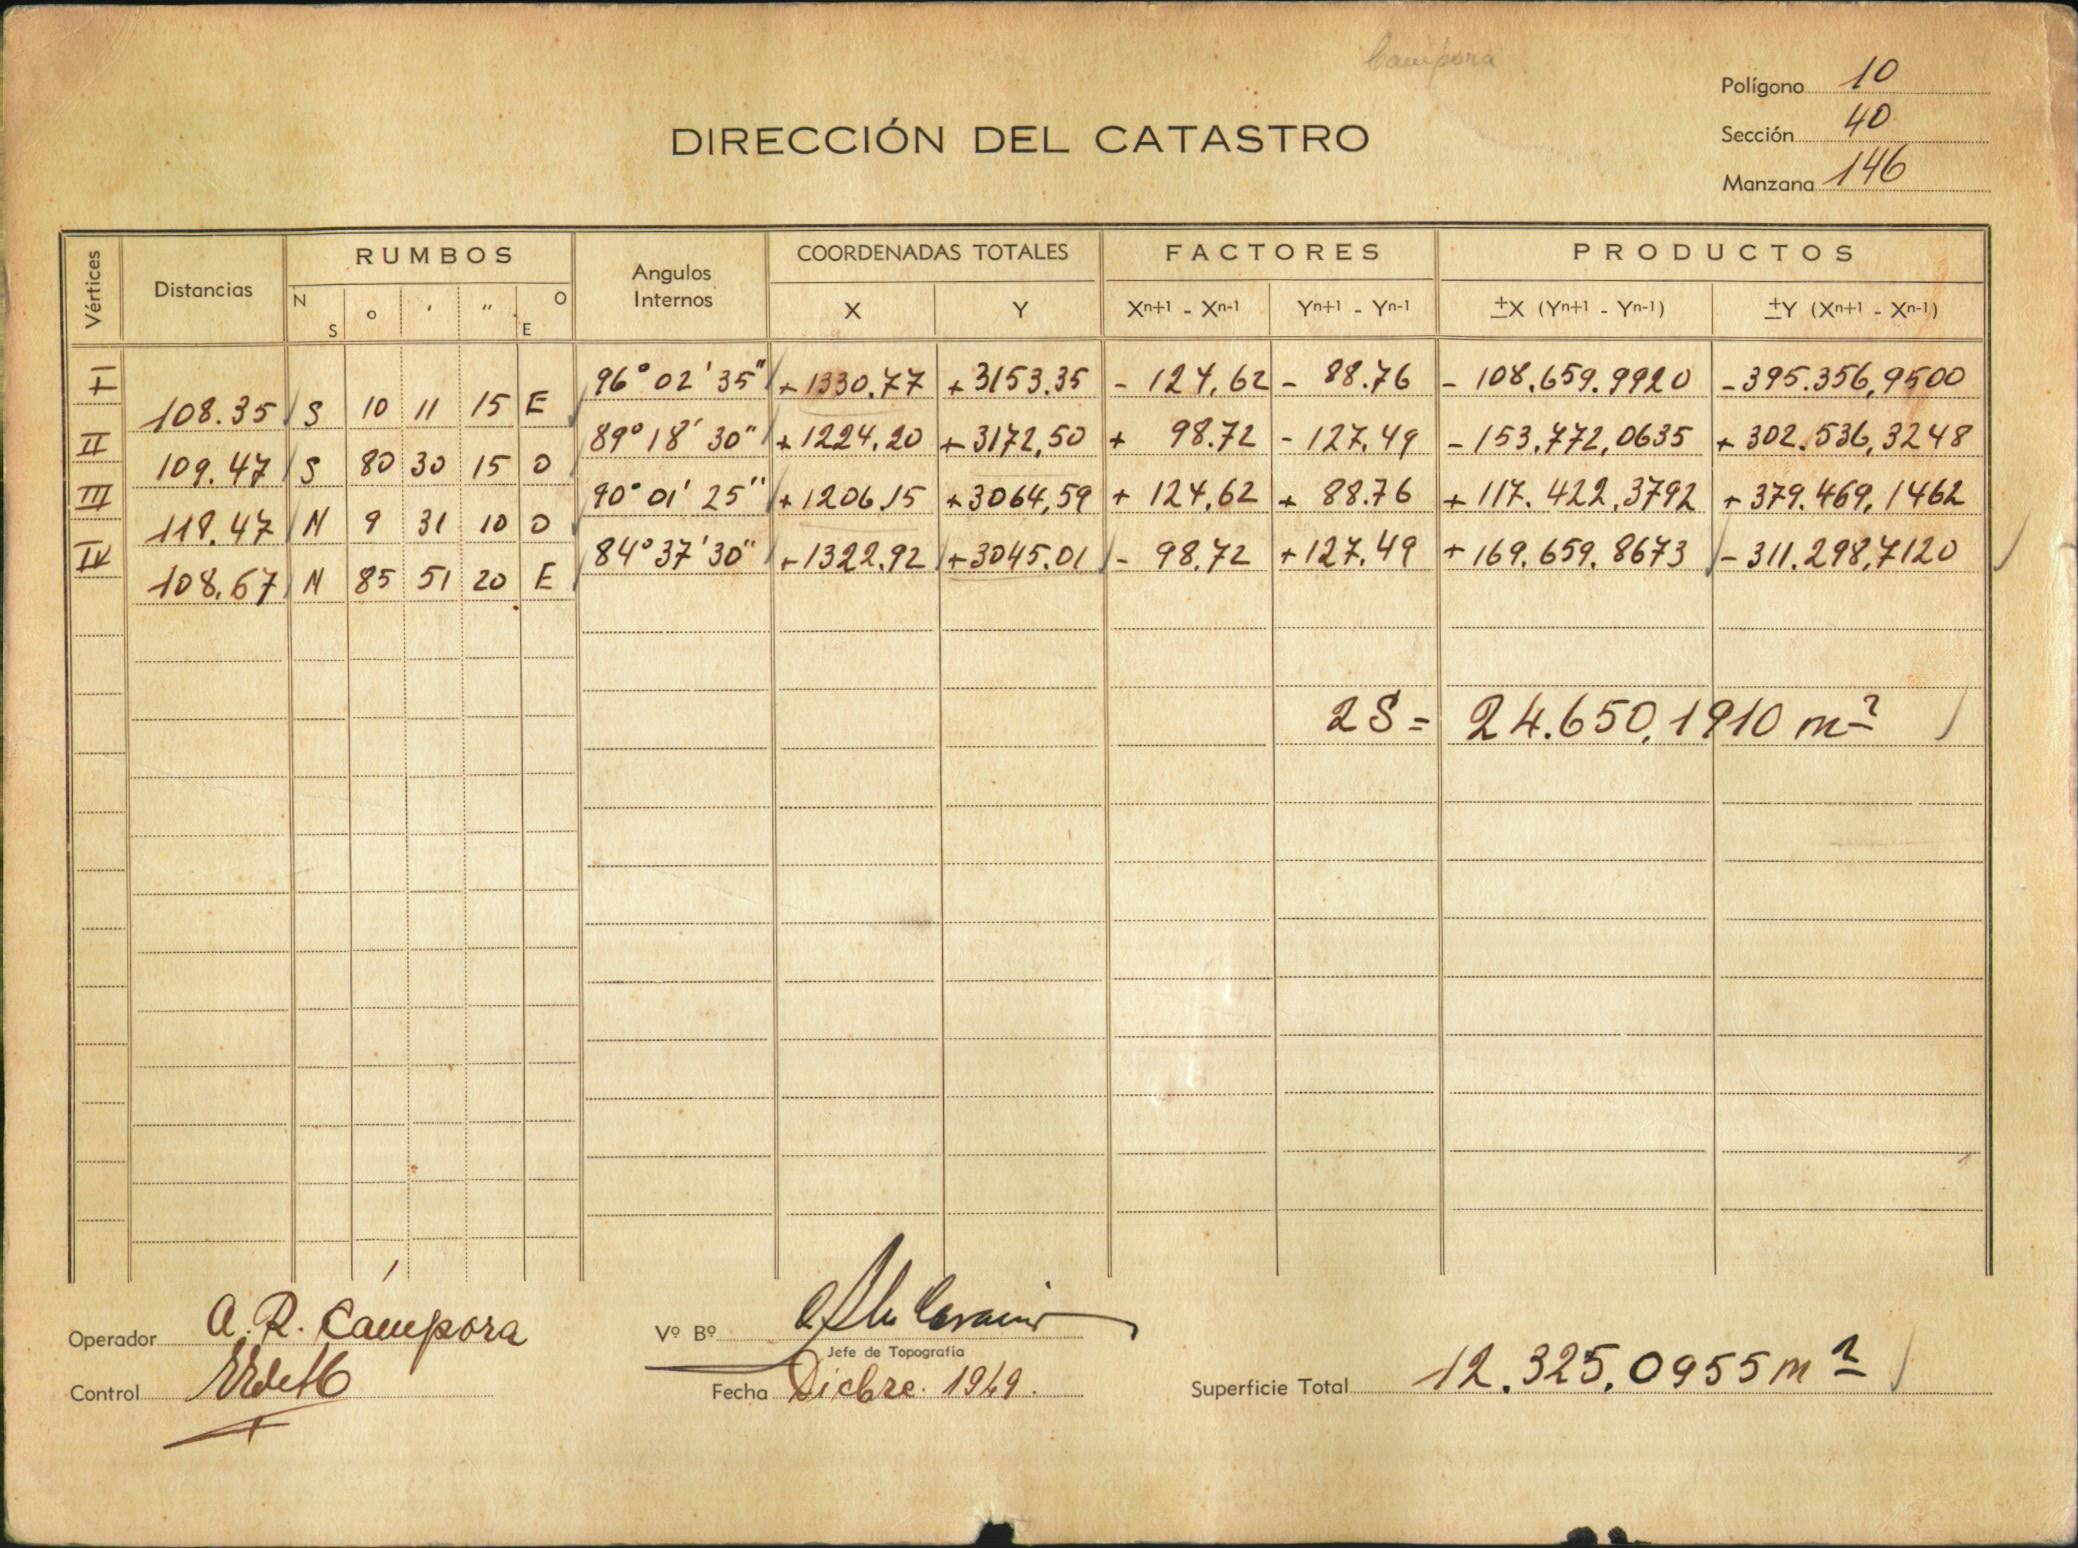 Campora
Polígono 10
Sección 40
Manzana 146
DIRECCIÓN DEL CATASTRO
Vértices Distancias RUMBOS Angulos Internos COORDENADAS TOTALES FACTORES PRODUCTOS
N S o ' " E O X Y Xⁿ⁺¹ - Xⁿ⁻¹ Yⁿ⁺¹ - Yⁿ⁻¹ ±X (Yⁿ⁺¹ - Yⁿ⁻¹) ±Y (Xⁿ⁺¹ - Xⁿ⁻¹)
I 96° 02' 35" +1330.77 +3153.35 - 124,62 - 88.76 - 108.659.9920 -395.356,9500
108.35 S 10 11 15 E
II 89° 18' 30" +1224.20 +3172,50 + 98.72 - 127.49 -153.772,0635 + 302.536,3248
109.47 S 80 30 15 O
III 90° 01' 25" +1206.15 +3064,59 + 124,62 + 88.76 + 117.422,3792 + 379.469,1462
118.47 N 9 31 10 O
IV 84° 37' 30" +1322.92 +3045.01 - 98.72 +127.49 +169.659.8673 - 311.298,7120
108.67 N 85 51 20 E
2S = 24.650,1910 m²
Operador A. R. Cámpora
Vº Bº
Jefe de Topografía
Control
Fecha Dicbre. 1949.
Superficie Total 12.325,0955 m²